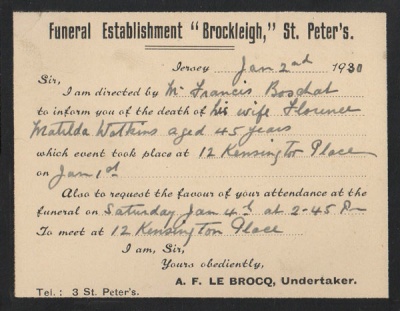 Funeral Establishment "Brockleigh," St. Peter's.
Jersey Jan 2nd 1930
Sir,
I am directed by Mr Francis Boschat
to inform you of the death of his wife Florence
Matilda Watkins aged 45 years
which event took place at 12 Kensington Place
on Jan 1st
Also to request the favour of your attendance at the
funeral on Saturday Jan 4th at 2-45 P-
To meet at 12 Kensington Place
I am, Sir,
Yours obediently,
A. F. LE BROCQ, Undertaker.
Tel.: 3 St. Peter's.